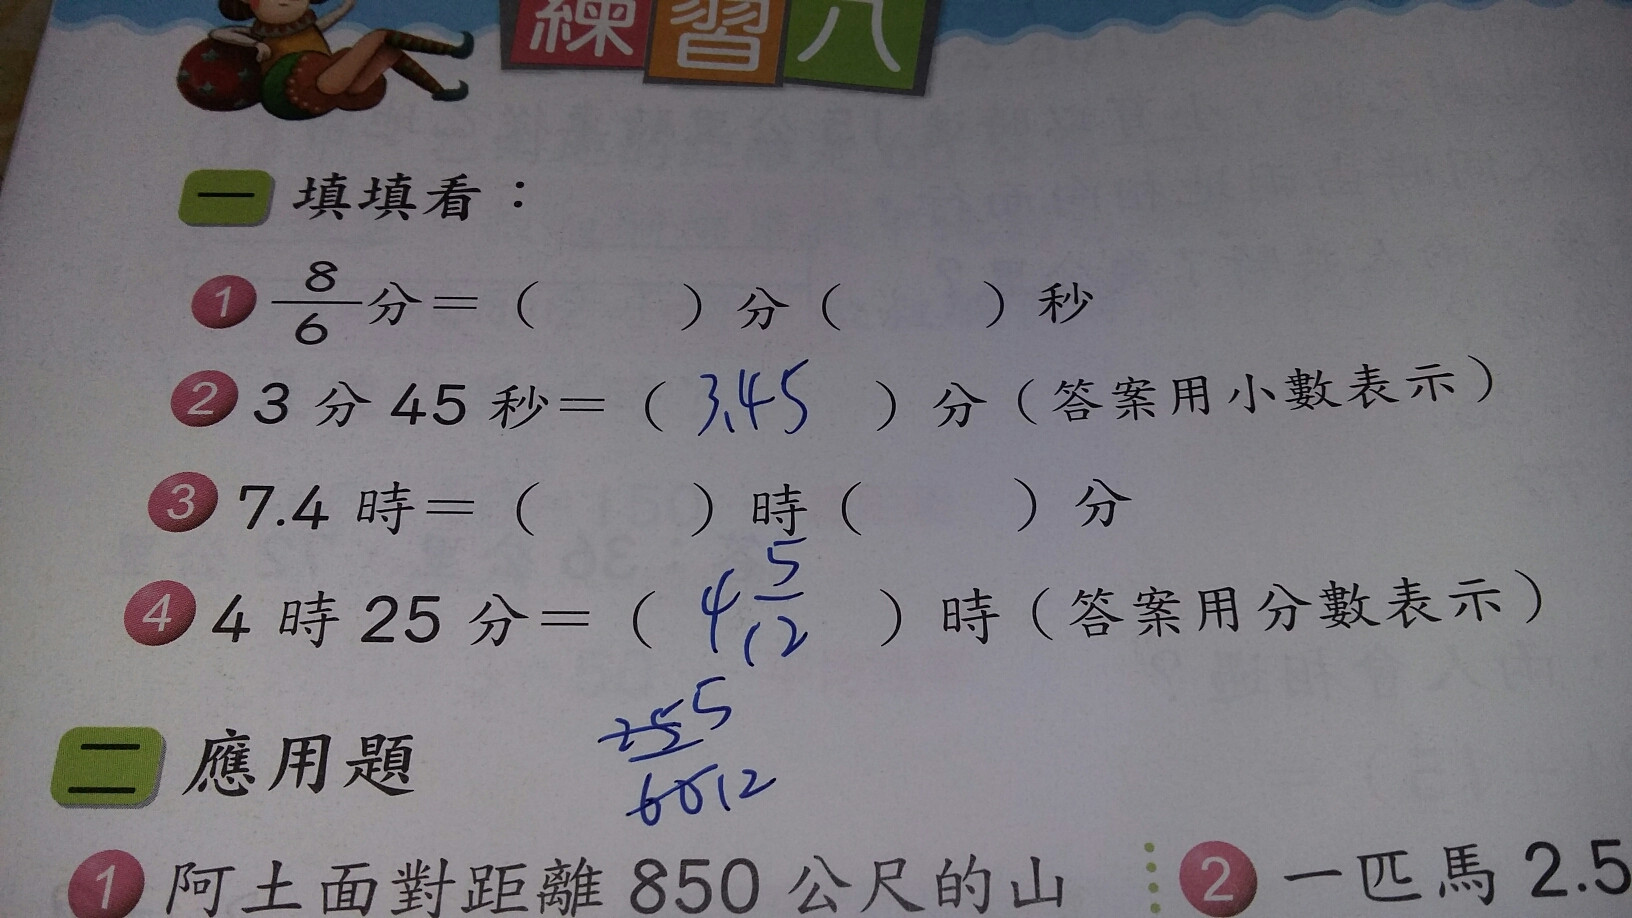 練習八
一 填填看：
1 8/6分＝（ ）分（ ）秒
2 3分45秒＝（ 3.45 ）分（答案用小數表示）
3 7.4時＝（ ）時（ ）分
4 4時25分＝（ 4 5/12 ）時（答案用分數表示）
25 5 5
60 12
二 應用題
1 阿土面對距離850公尺的山
2 一匹馬2.5